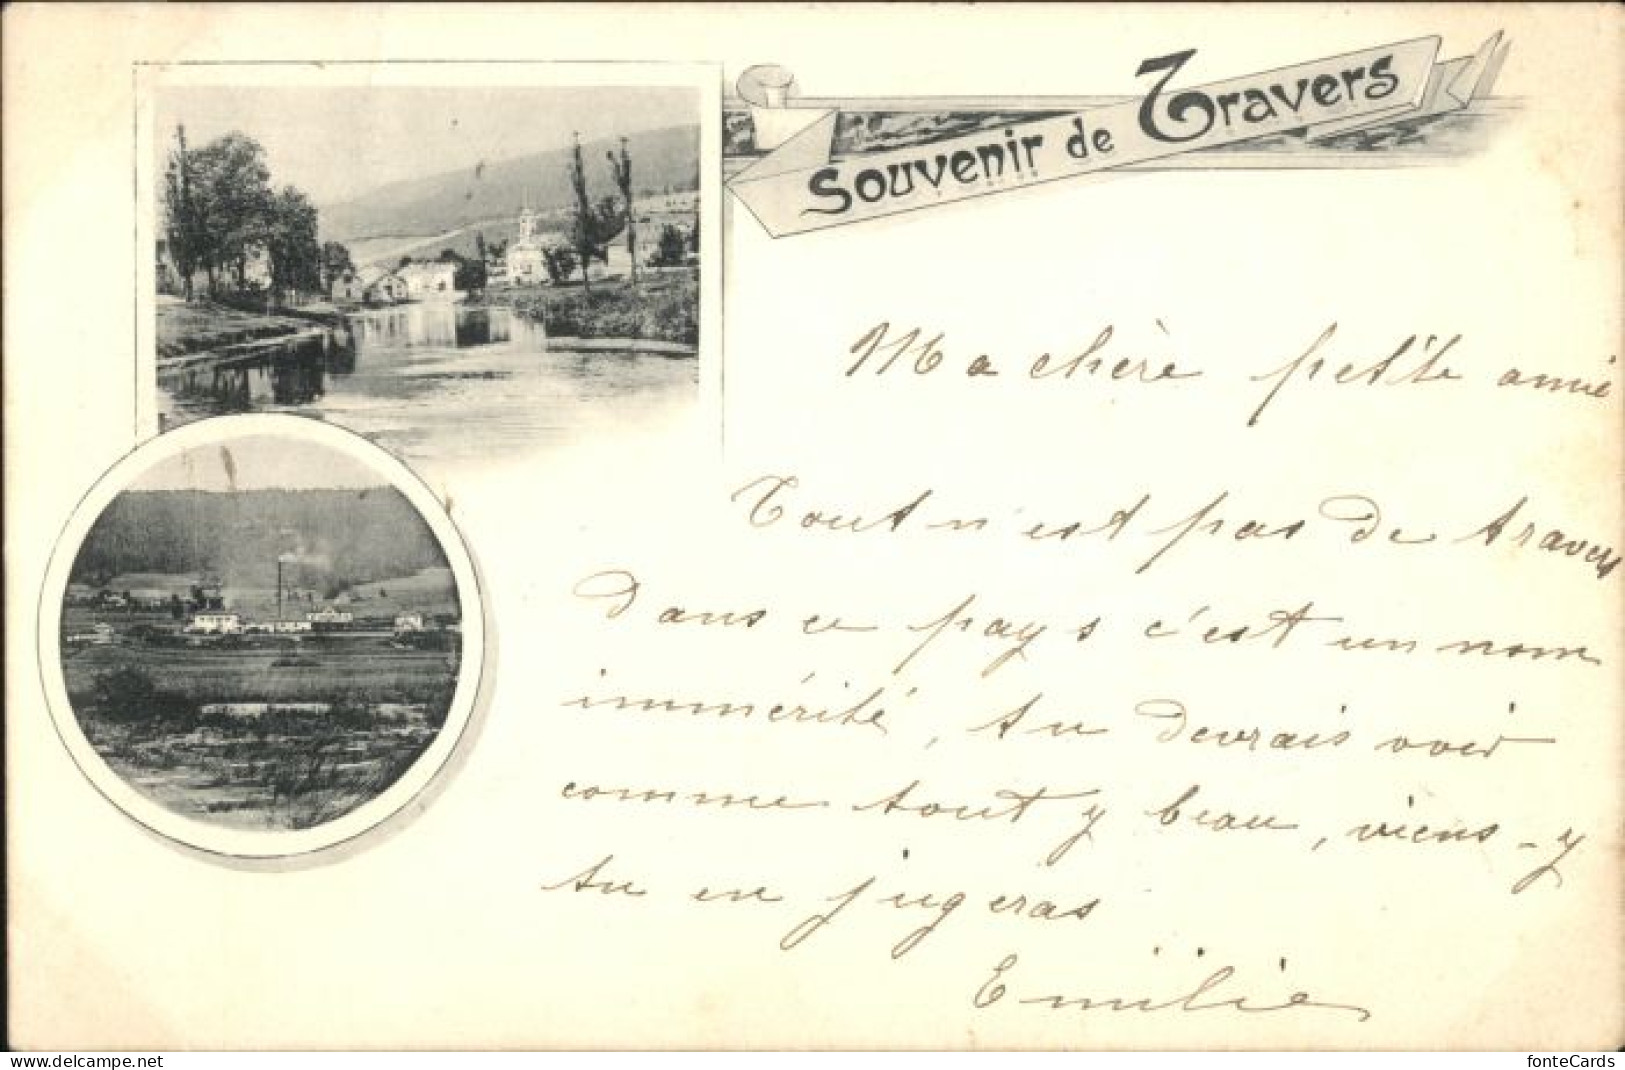 Souvenir de Travers
Ma chère petite amie
Tout n'est pas de travers
Dans ce pays c'est un nom
immérité, tu devrais voir
comme tout y beau, viens-y
tu en jugeras
Emilie
www.delcampe.net
fonteCards